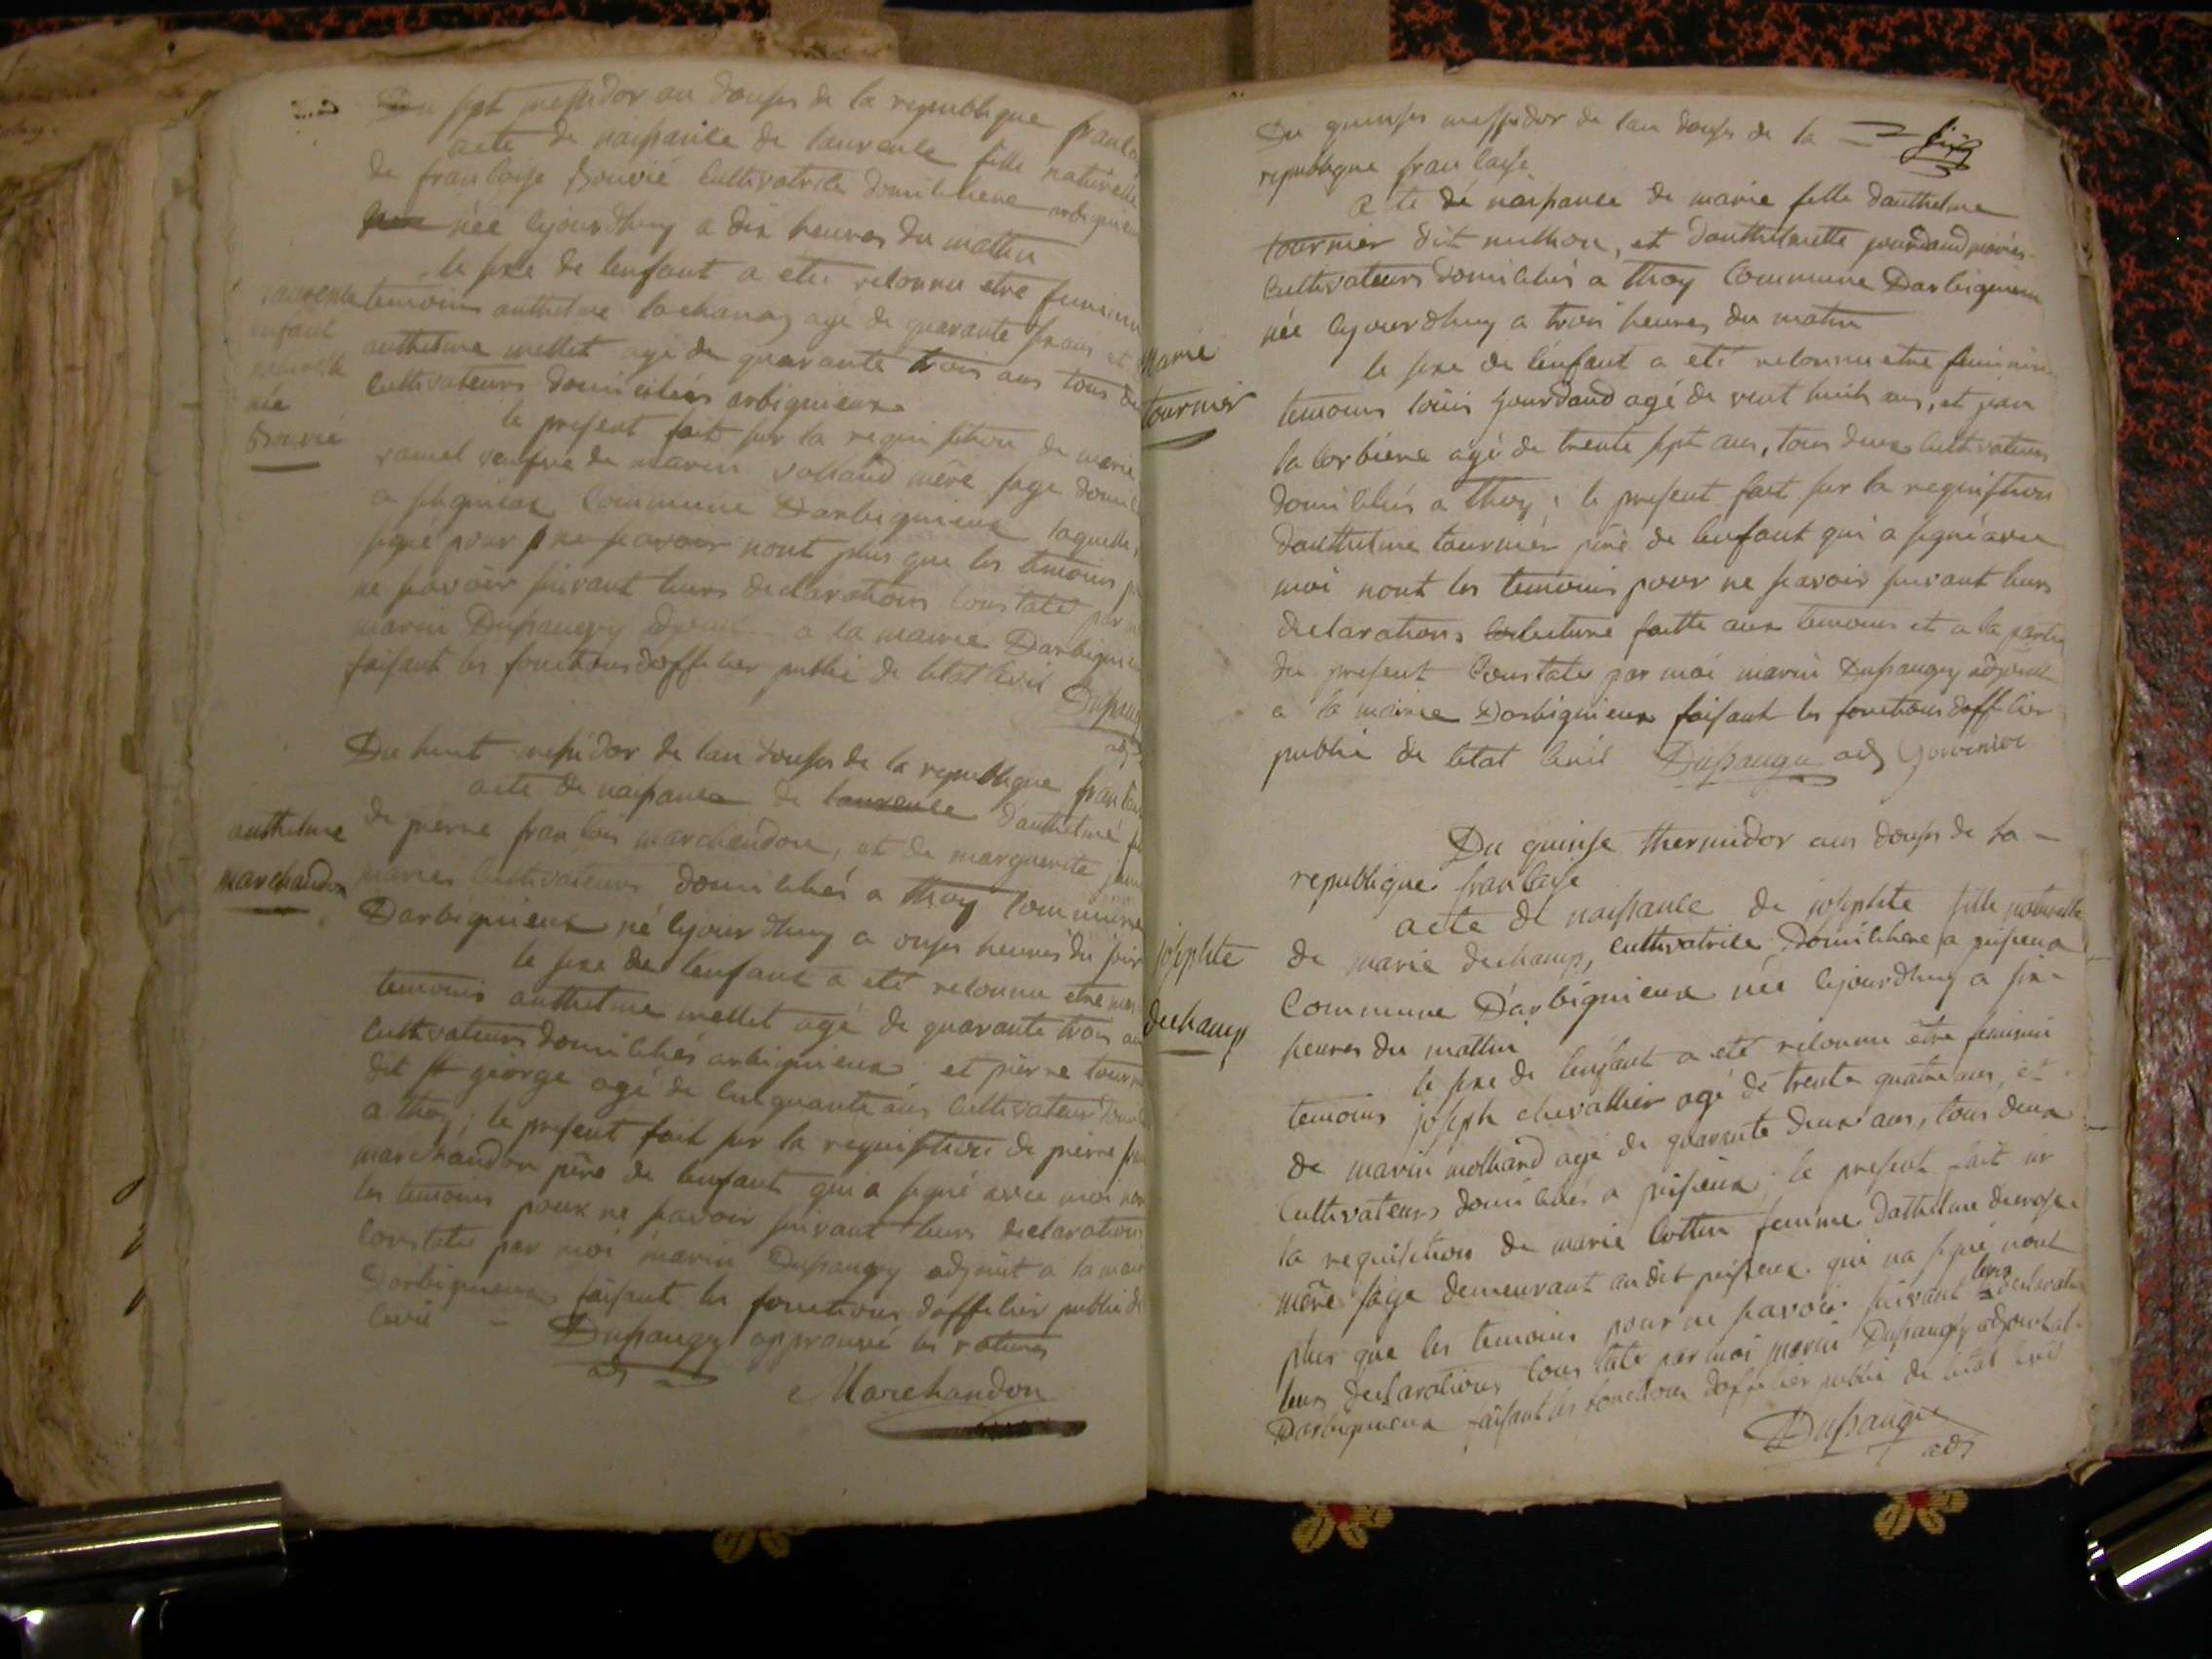 Du sept messidor an douse de la republique francai
acte de naissance de laurence fille naturelle
de francoise Bouvié cultivatrice domiciliere arbignieu
née cejourdhuy a dix heures du mattin
le sexe de lenfant a eté reconnu etre feminin
laurence
enfant
naturelle
née
Bouvié
temoins anthelme lachanaz agé de quarante six ans et
anthelme mellet agé de quarante trois ans tous de
cultivateurs domiciliés arbignieux
le present fait sur la requisition de marie
ramel veufve de marin volland mère sage domi
a Commune Darbignieux laquelle
signé pour ne scavoir nont plus que les temoins p
ne scavoir suivant leurs declarations constaté par m
marin Dupaugey adjoint a la mairie Darbignieu
faisant les fonctions dofficier public de letat civil
Dupaug
adj
Du huit messidor de lan douse de la republique francais
acte de naissance de laurence danthelme fi
anthelme
marchandon
de pierre francois marchandon, et de marguerite
mariés cultivateurs domiciliés a thoy commune
Darbignieux né cejourdhuy a onse heures du soir
le sexe de lenfant a eté reconnu etre mas
temoins anthelme mellet agé de quarante trois an
cultivateurs domiciliés arbignieux et pierre tourn
dit st george agé de cinquante ans cultivateur domi
a thoy; le present fait sur la requisition de pierre fra
marchandon père de lenfant qui a signé avec moi non
les temoins pour ne scavoir suivant leurs declarations
constaté par moi marin Dupaugey adjoint a la mair
Darbignieux faisant les fonctions dofficier public de
civil - Dupaugey approuvé les ratures
adj
Marchandon
Du quinse messidor de lan douse de la
republique francaise
acte de naissance de marie fille danthelme
tournier dit milhon, et danthelmette jourdand mariés
cultivateurs domiciliés a thoy Commune Darbignieux
née cejourdhuy a trois heures du matin
Marie
tournier
le sexe de lenfant a eté reconnu etre feminin
temoins loüis jourdand agé de vent huit ans, et jean
la corbiere agé de trente sept ans, tous deux cultivateurs
domiciliés a thoy; le present fait sur la requisition
danthelme tournier père de lenfant qui a signé avec
moi nont les temoins pour ne scavoir suivant leurs
declarations lecture faitte aux temoins et a la partie
du present Constaté par moi marin Dupaugey adjoint
a la mairie Darbignieux faisant les fonctions dofficier
public de letat civil Dupaugey adj
Du quinse thermidor an douse de la -
republique francaise
acte de naissance de josephte fille naturelle
josephte
dechamp
de marie dechamp, cultivatrice Domiciliere a peisieux
Commune Darbignieux née cejourdhuy a six
heures du mattin
le sexe de lenfant a eté reconnu etre feminin
temoins joseph chevallier agé de trente quatre ans, et
de marin molhard agé de quarante deux ans, tous deux
cultivateurs domiciliés a peisieux; le present fait sur
la requisition de marie cottin femme dathelme
mère sage demeurant audit peisieux qui na signé nont
plus que les temoins pour ne scavoir suivant leurs
leurs declarations constaté par moi marin Dupaugey adjoint a l
Darbignieux faisant les fonctions dofficier public de letat civil
Dupaugey
adj